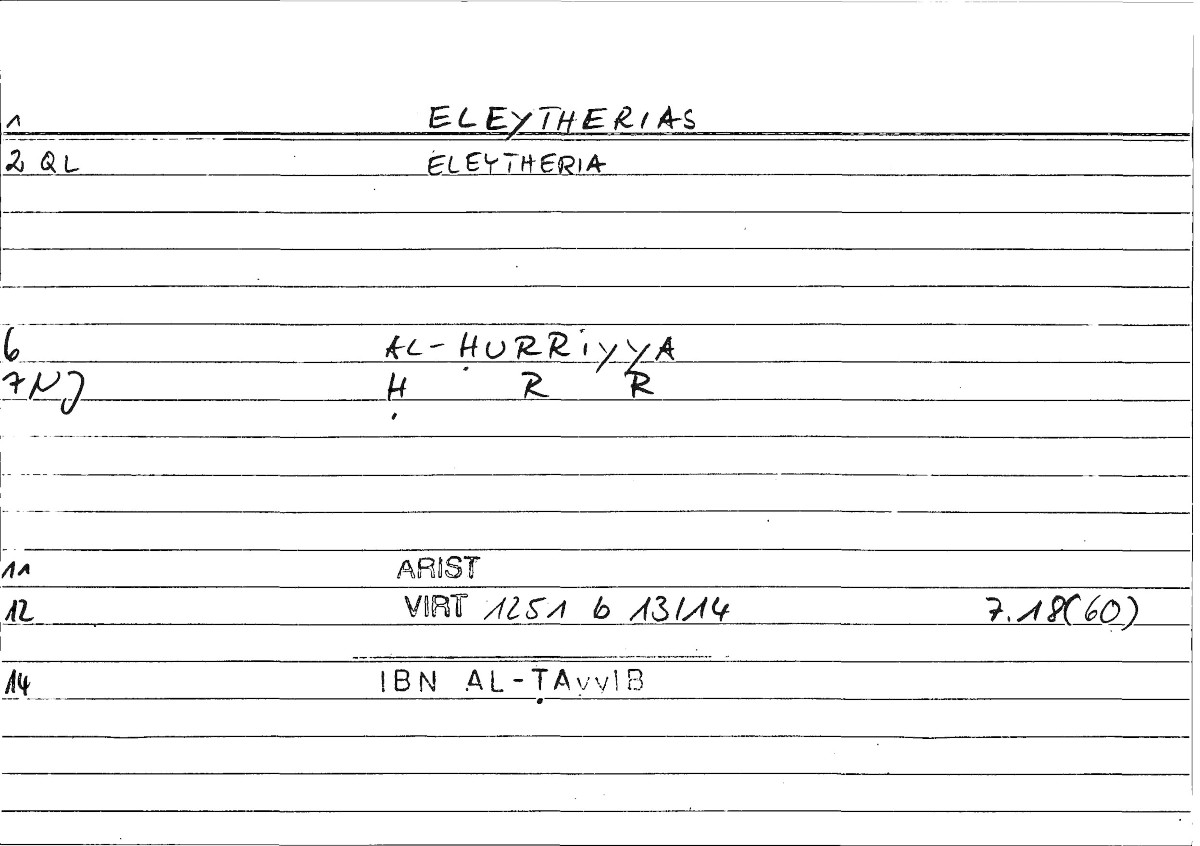 1 ELEYTHERIAS
2 QL ELEYTHERIA
6 AL-ḤURRiyyA
7 NJ Ḥ R R
11 ARIST
12 VIRT 1251 b 13/14 7.18(60)
14 IBN AL-ṬAyyIB